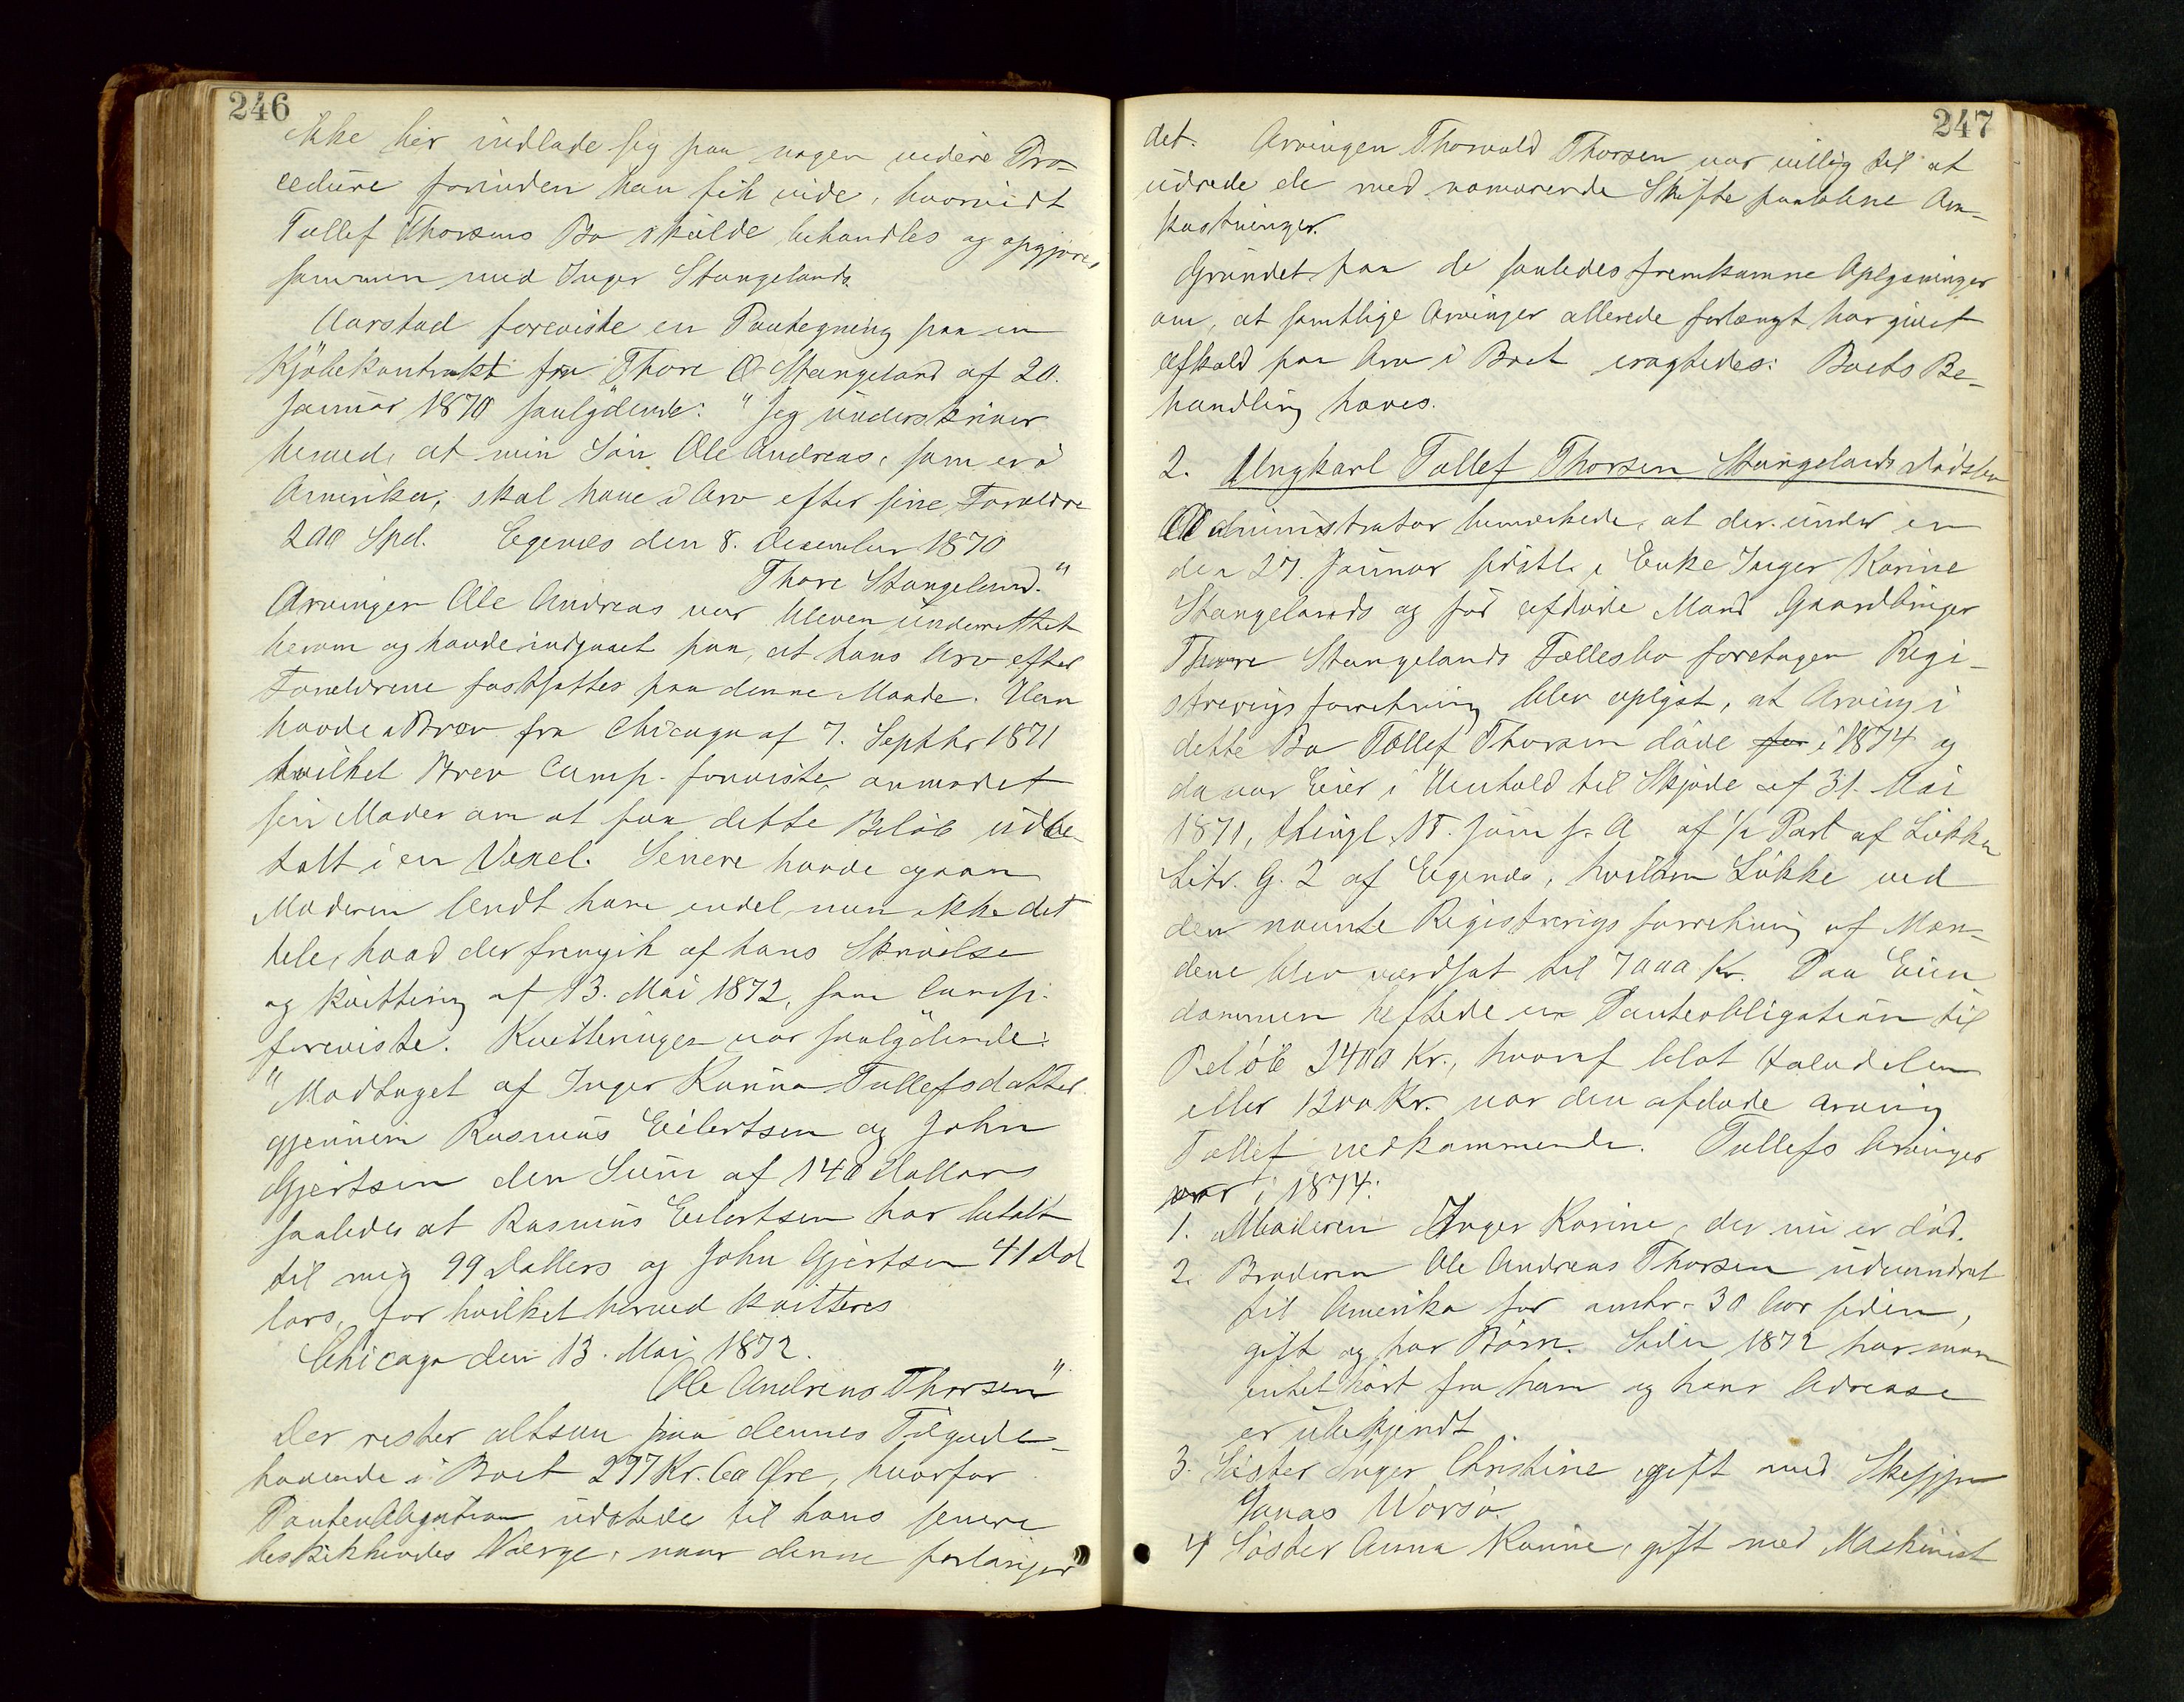 246
ikke her indlade sig paa nogen videre Pro-
cedure forinden han fik vide, hvorvidt
Tollef Thorsens Bo skulde behandles og opgjøres
sammen med Inger Stangelands.
Aarstad foreviste en Paategning paa en
Kjøbekontrakt fra Thore O Stangeland af 20.
Januar 1870 saalydende: "Jeg underskriver
herved, at min Søn Ole Andreas, som er i
Amerika, skal have i Arv efter sine Forældre
200 Spd. Egenæs den 8. December 1870
Thore Stangeland."
Arvingen Ole Andreas var bleven underrettet
herom og havde indgaaet paa, at hans Arv efter
Forældrene fastsattes paa denne Maade. Han
havde i Brev fra Chicago af 7. Septbr 1871
hvilket Brev Comp. foreviste, anmodet
sin Moder om at faa dette Beløb udbe-
talt i en Vexel. Senere havde ogsaa
Moderen sendt ham endel, men ikke det
hele, hvad der fremgik af hans Skrivelse
og Kvittering af 13. Mai 1872, som Comp.
foreviste. Kvitteringen var saalydende:
"Modtaget af Inger Karina Tollefsdatter
gjennem Rasmus Eilertsen og John
Gjertsen den Sum af 140 Dollars
saaledes at Rasmus Eilertsen har betalt
til mig 99 Dollers og John Gjertsen 41 Dol
lars, for hvilket herved kvitteres
Chicago den 13. Mai 1872.
Ole Andreas Thorsen"
Der rester altsaa paa dennes Tilgode-
havende i Boet 277 Kr. 60 Øre, hvorfor
Panteobligation udstedes til hans senere
beskikkendes Værge, naar denne forlanger
247
det. Arvingen Thorvald Thorsen var villig til at
udrede de med nærværende Skifte paaløbne Om-
kostninger.
Grundet paa de saaledes fremkomne Oplysninger
om, at samtlige Arvinger allerede forlængst har givet
Afkald paa Arv i Boet eragtedes: Boets Be-
handling hæves.
2. Ungkarl Tollef Thorsen Stangelands Dødsbo
Administrator bemærkede, at der under en
den 27. Januar sidstl. i Enke Inger Karine
Stangelands og før afdøde Mand Gaardbruger
Thore Stangelands Fællesbo foretagen Regi-
streringsforretning blev oplyst, at Arving i
dette Bo Tollef Thorsen døde for i 1874 og
da var Eier i Henhold til Skjøde af 31. Mai
1871, thingl. 15. Juni s. A af 1/2 Part af Løkken
Litr. G. 2 af Egenæs, hvilken Løkke ved
den nævnte Registreringsforretning af Mæn-
dene blev værdsat til 7000 Kr. Paa Eien
dommen heftede en Panteobligation til
Beløb 2400 Kr., hvoraf blot Halvdelen
eller 1200 Kr. var den afdøde Arving
Tollef vedkommende. Tollefs Arvinger
var i 1874:
1. Moderen Inger Karine, der nu er død.
2. Broderen Ole Andreas Thorsen udvandret
til Amerika for omtr. 30 Aar siden,
gift og har Børn. Siden 1872 har man
intet hørt fra ham og hans Adresse
er ubekjendt
3. Søster Inger Christine, gift med Skipper
Jonas Worsø.
4 Søster Anna Karine, gift med Maskinist